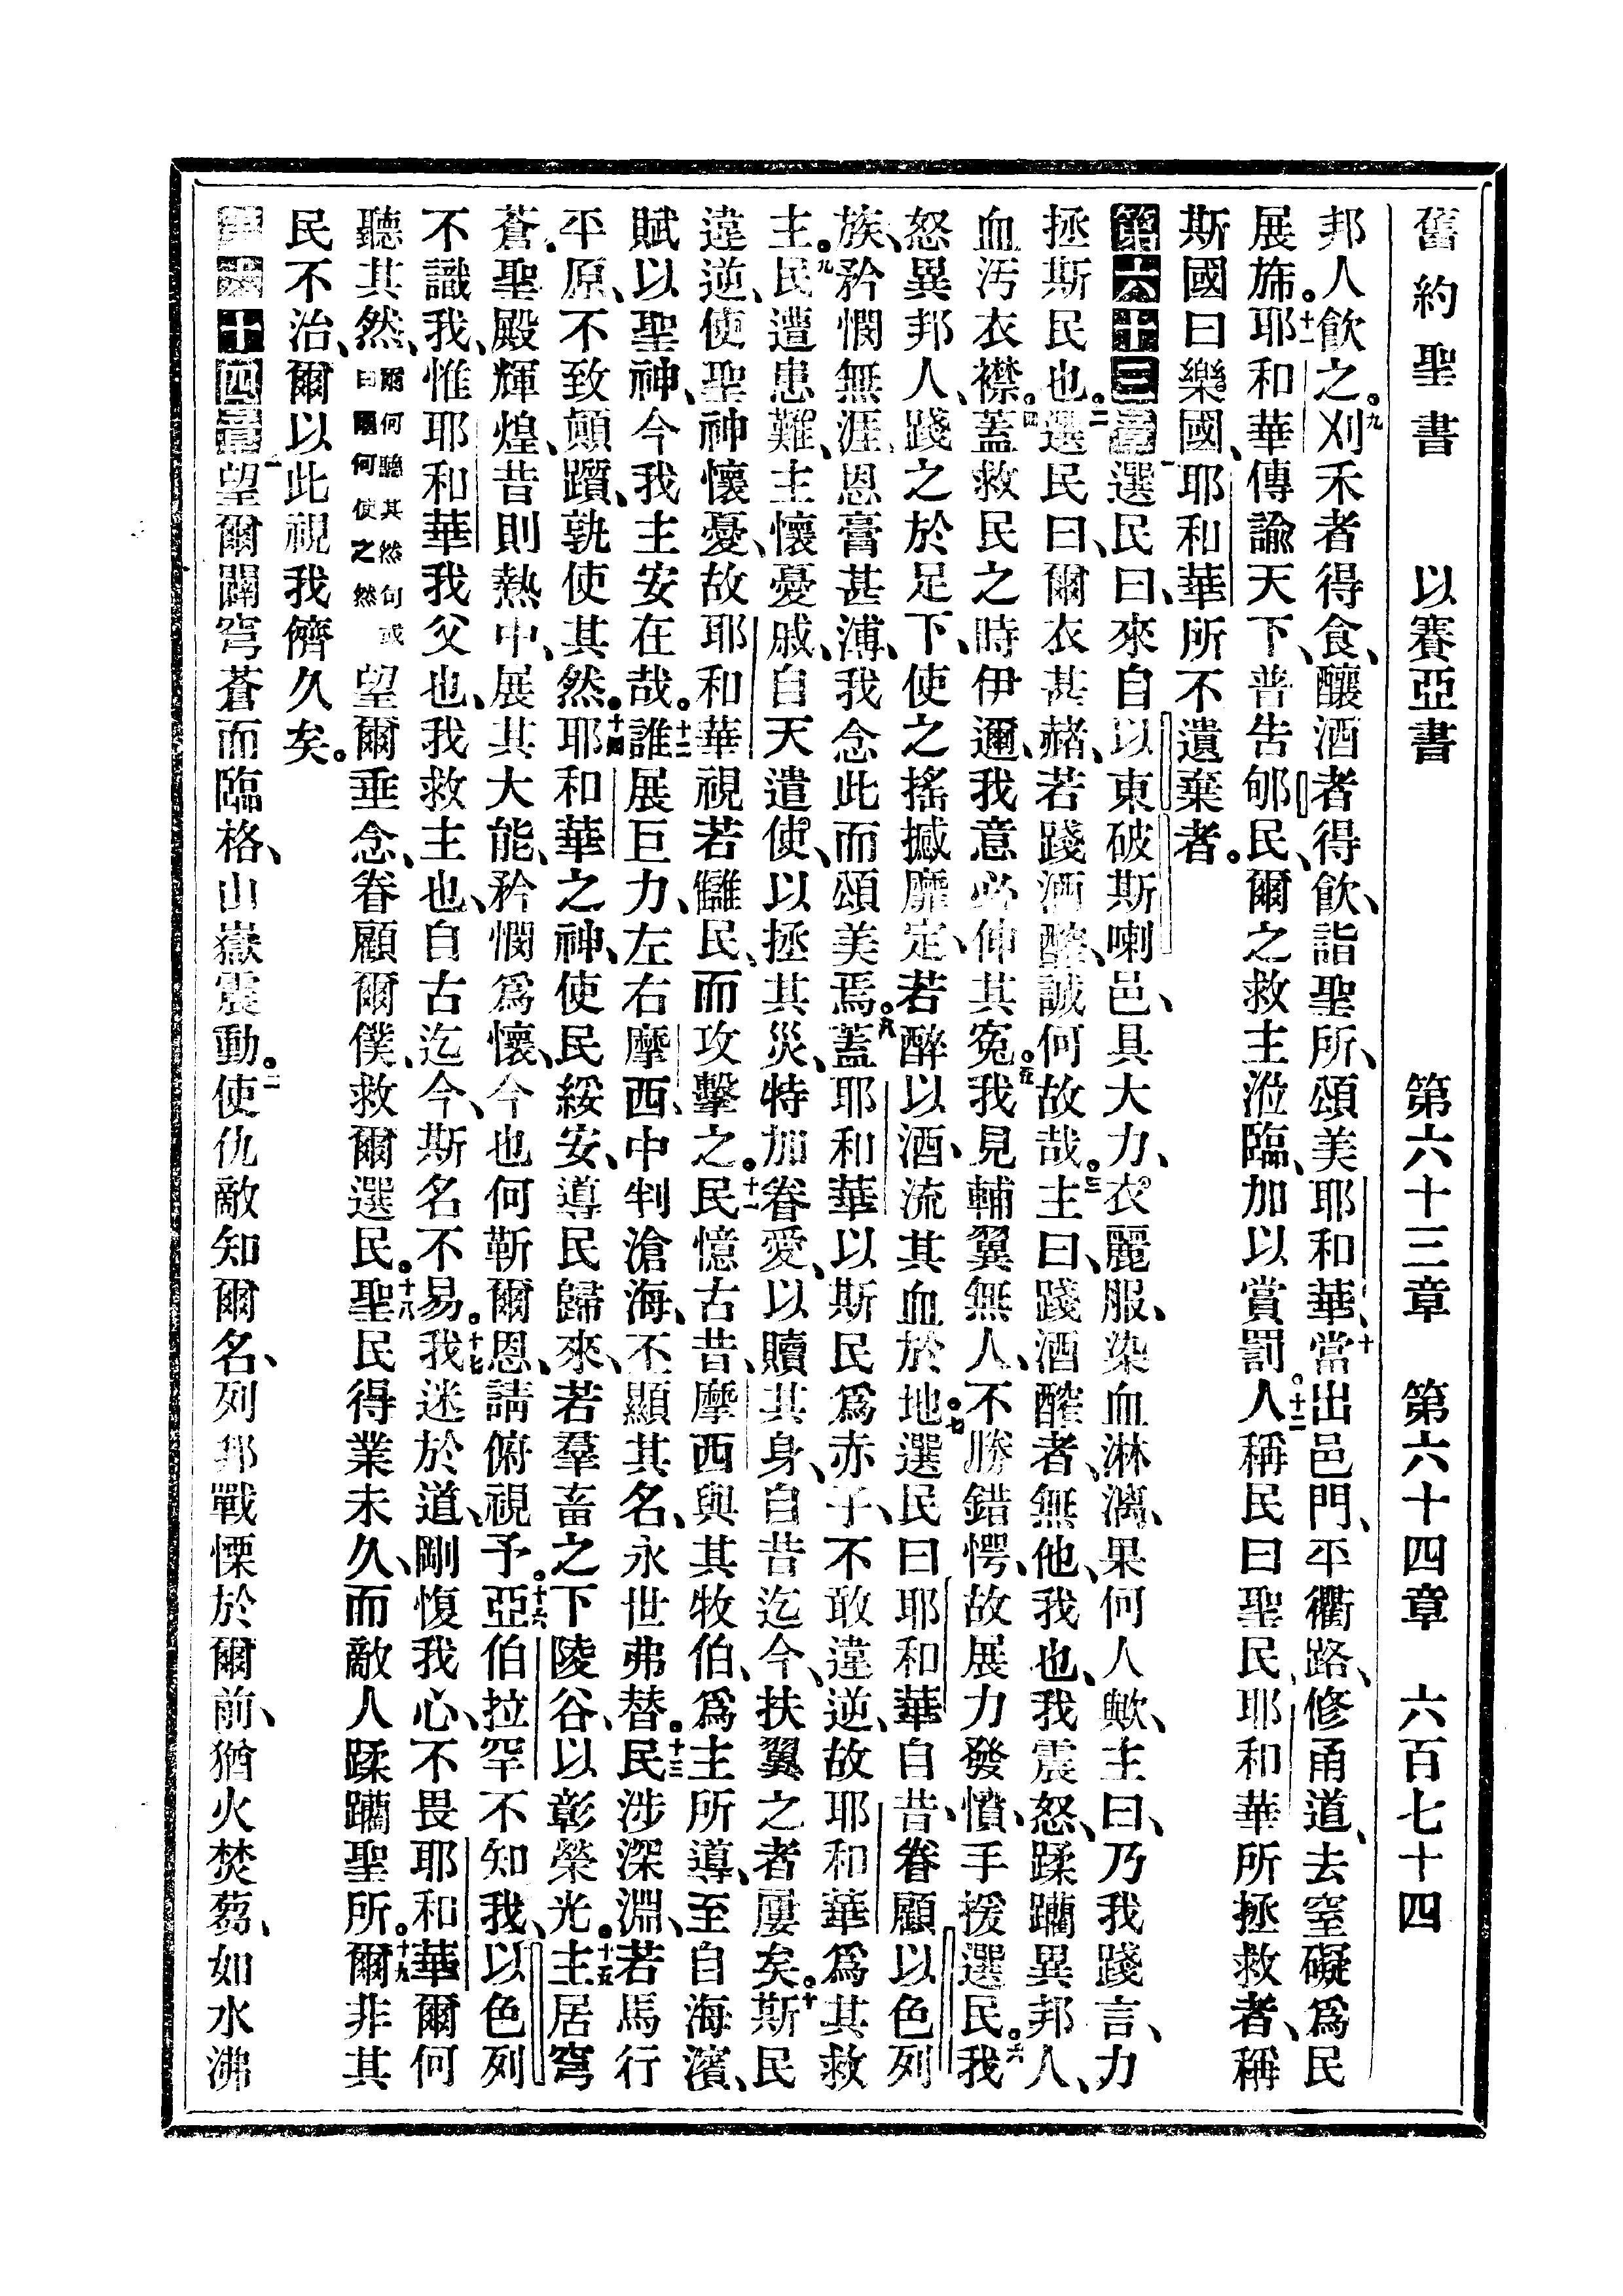 舊約聖書 以賽亞書 第六十三章 第六十四章 六百七十四
邦人飲之。九刈禾者得食、釀酒者得飲、詣聖所、頌美耶和華、十當出邑門、平衢路、修甬道、去窒礙、爲民
展旆。十一耶和華傳諭天下、普告郇民、爾之救主涖臨、加以賞罰。十二人稱民曰聖民、耶和華所拯救者、稱
斯國曰樂國、耶和華所不遺棄者。
第六十三章一選民曰、來自以東破斯喇邑、具大力、衣麗服、染血淋漓、果何人歟、主曰、乃我踐言、力
拯斯民也。二選民曰、爾衣甚赭、若踐酒醡、誠何故哉。三主曰、踐酒醡者、無他、我也、我震怒、蹂躪異邦人、
血汚衣襟。四蓋救民之時伊邇、我意必伸其寃。五我見輔翼無人、不勝錯愕、故展力發憤、手援選民。六我
怒異邦人、踐之於足下、使之搖撼靡定、若醉以酒、流其血於地。七選民曰耶和華自昔、眷顧以色列
族、矜憫無涯、恩膏甚溥、我念此而頌美焉。八蓋耶和華以斯民爲赤子、不敢違逆、故耶和華爲其救
主。九民遭患難、主懷憂戚、自天遣使、以拯其災、特加眷愛、以贖其身、自昔迄今、扶翼之者屢矣。十斯民
違逆、使聖神懷憂、故耶和華視若讎民、而攻擊之。十一民憶古昔、摩西與其牧伯、爲主所導、至自海濱、
賦以聖神、今我主安在哉。十二誰展巨力、左右摩西、中判滄海、丕顯其名、永世弗替。十三民涉深淵、若馬行
平原、不致顛躓、孰使其然。十四耶和華之神、使民綏安、導民歸來、若羣畜之下陵谷、以彰榮光。十五主居穹
蒼。聖殿輝煌、昔則熱中、展其大能、矜憫爲懷、今也何靳爾恩、請俯視予。十六亞伯拉罕不知我、以色列
不識我、惟耶和華我父也、我救主也、自古迄今、斯名不易。十七我迷於道、剛愎我心、不畏耶和華、爾何
聽其然、爾何聽其然句或曰爾何使之然望爾垂念、眷顧爾僕、救爾選民。十八聖民得業未久、而敵人蹂躪聖所。十九爾非其
民不治、爾以此視我儕久矣。
第六十四章一望爾闢穹蒼而臨格、山嶽震動。二使仇敵知爾名、列邦戰慄於爾前、猶火焚芻、如水沸